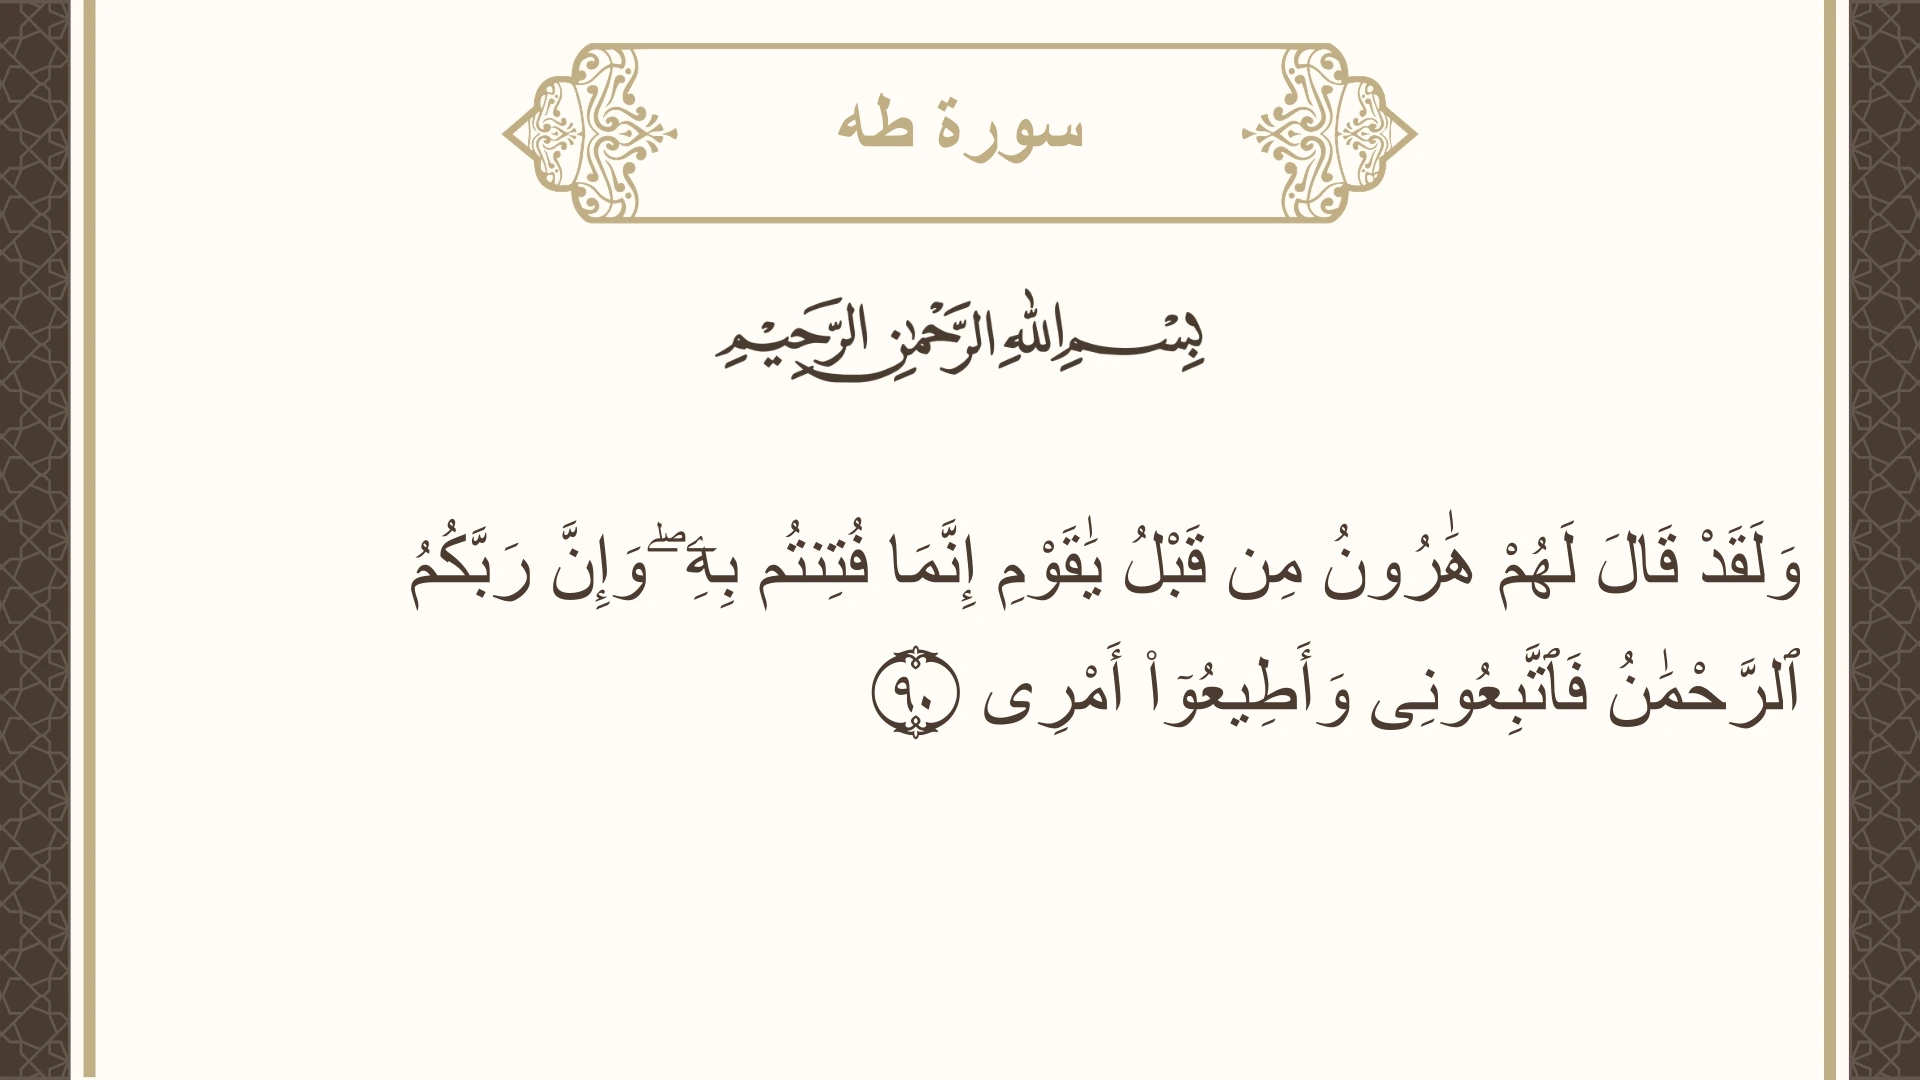 سورة طه
بِسْمِ اللهِ الرَّحْمٰنِ الرَّحِيْمِ
وَلَقَدْ قَالَ لَهُمْ هَٰرُونُ مِن قَبْلُ يَٰقَوْمِ إِنَّمَا فُتِنتُم بِهِۦ ۖ وَإِنَّ رَبَّكُمُ
ٱلرَّحْمَٰنُ فَٱتَّبِعُونِى وَأَطِيعُوٓا۟ أَمْرِى ٩٠